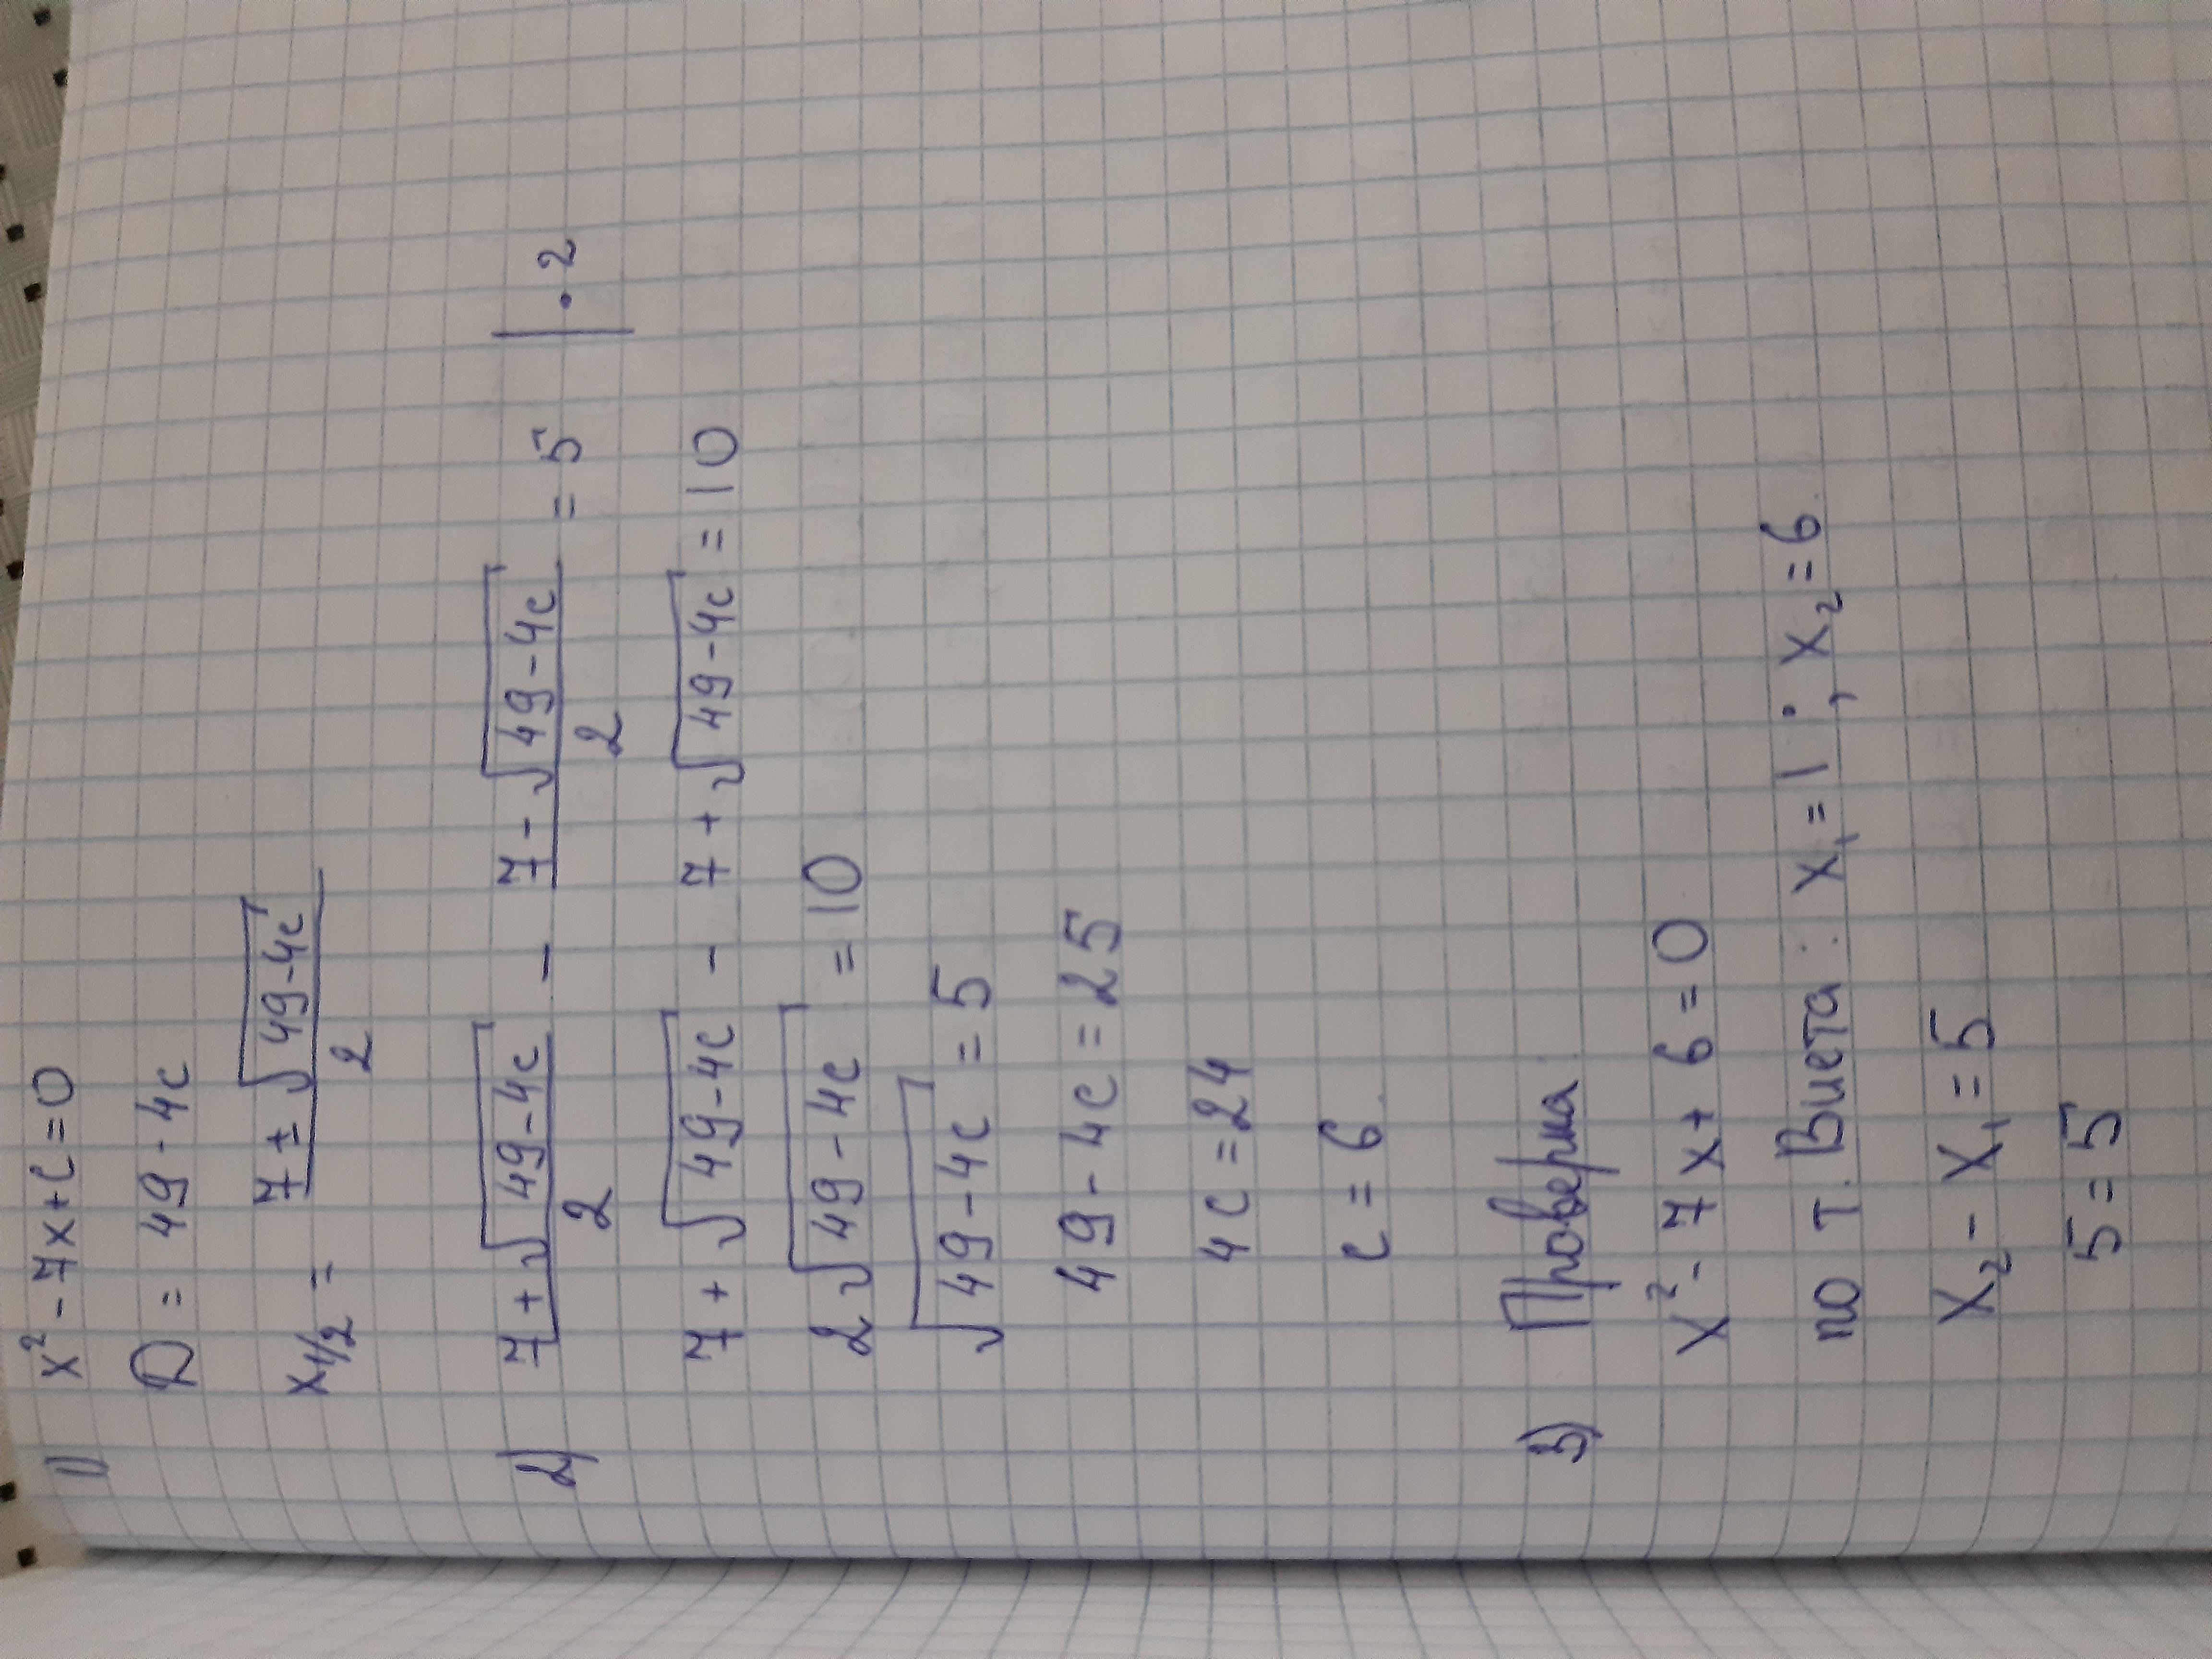 1) x² - 7x + c = 0
D = 49 - 4c
x1/2 = (7 ± √(49-4c))/2
2) (7 + √(49-4c))/2 - (7 - √(49-4c))/2 = 5 | · 2
7 + √(49-4c) - 7 + √(49-4c) = 10
2√(49-4c) = 10
√(49-4c) = 5
49 - 4c = 25
4c = 24
c = 6.
3) Проверка:
x² - 7x + 6 = 0
по т. Виета: x₁ = 1; x₂ = 6.
x₂ - x₁ = 5
5 = 5